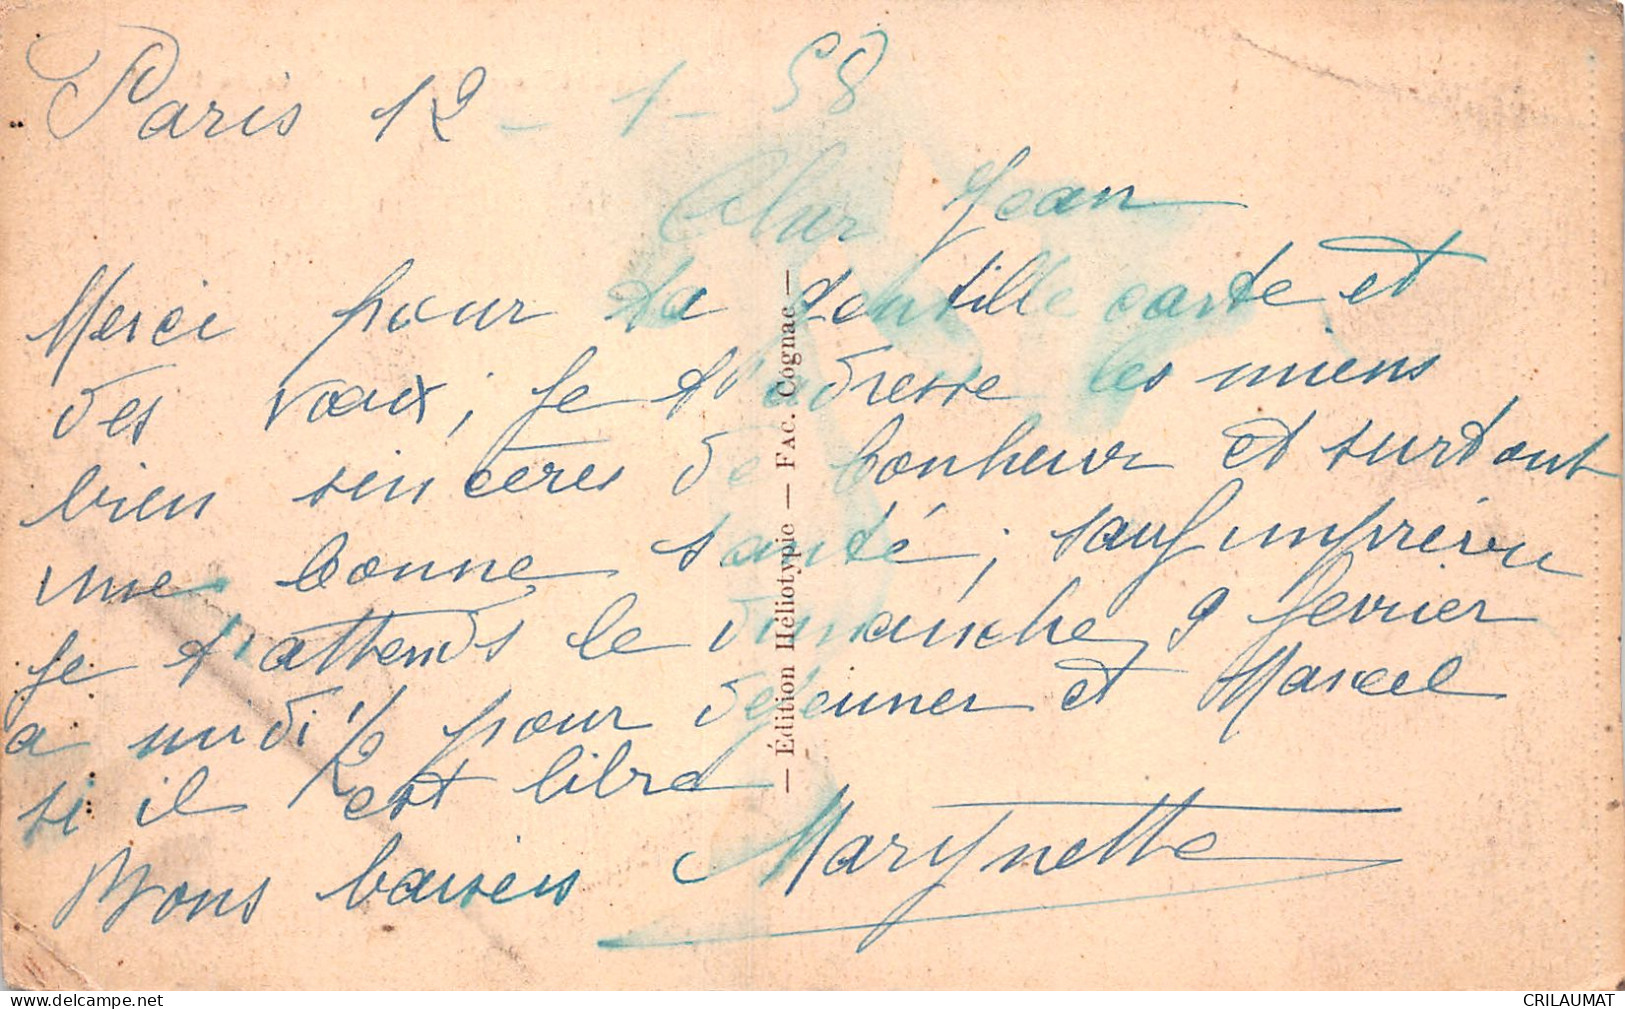 Paris 12 - 1 - 58
Cher Jean
Merci pour ta gentille carte et
des vœux, je t'adresse les miens
bien sincères de bonheur et surtout
une bonne santé, sauf imprévu
je t'attends le dimanche 9 fevrier
a midi 1/2 pour déjeuner et Marcel
si il est libre
Bons baisers Marynette
— Édition Héliotypic — FAC. Cognac —
CRILAUMAT